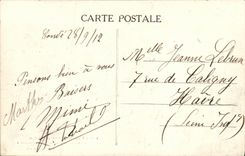 CARTE POSTALE
28/9/12
Pensons bien à vous
Baisers
Mimi
Mlle Jeanne Lebrun
7 rue de Caligny
Havre
(Seine Infre)